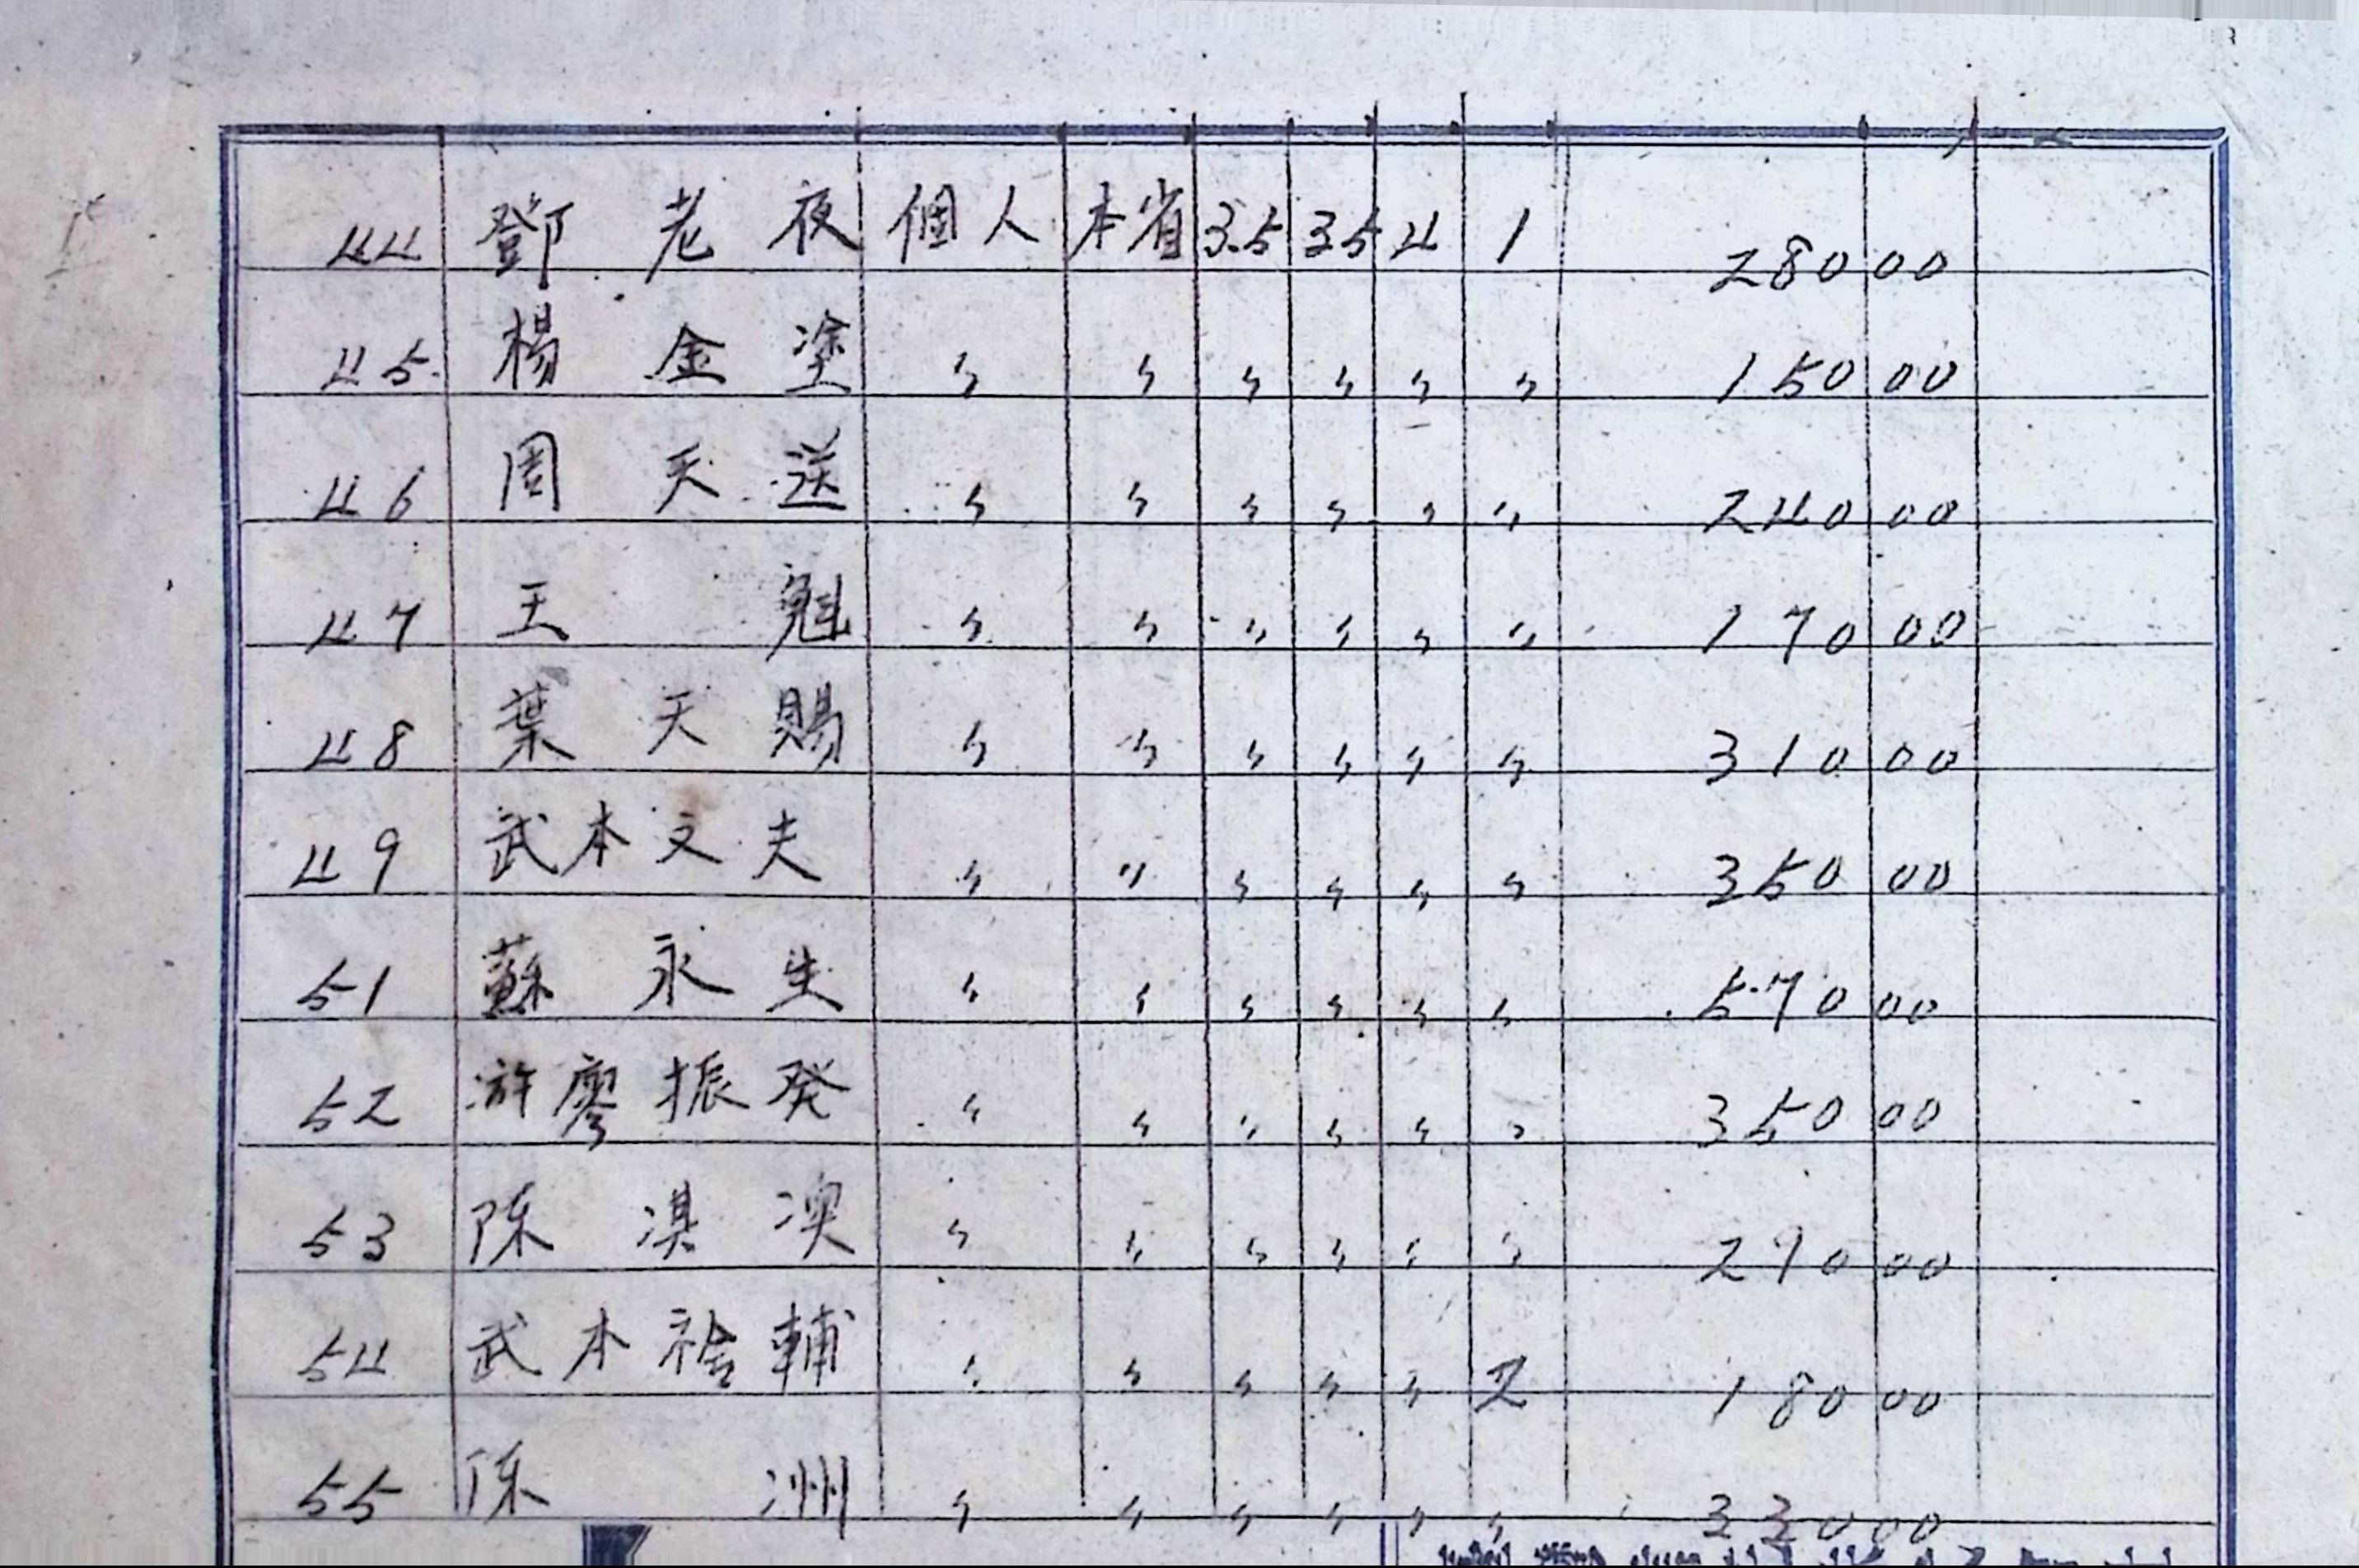 44 鄧老夜 個人 本省 3.5 35 4 1 280 00
45. 楊金塗 〃 〃 〃 〃 〃 〃 150 00
46 周天送 〃 〃 〃 〃 〃 〃 240 00
47 王魁 〃 〃 〃 〃 〃 〃 170 00
48 葉天賜 〃 〃 〃 〃 〃 〃 310 00
49 武本文夫 〃 〃 〃 〃 〃 〃 350 00
51 蘇永生 〃 〃 〃 〃 〃 〃 570 00
52 游廖振發 〃 〃 〃 〃 〃 〃 350 00
53 陳淇澳 〃 〃 〃 〃 〃 〃 290 00
54 武本 輔 〃 〃 〃 〃 〃 2 180 00
55 陳洲 〃 〃 〃 〃 〃 〃 330 00